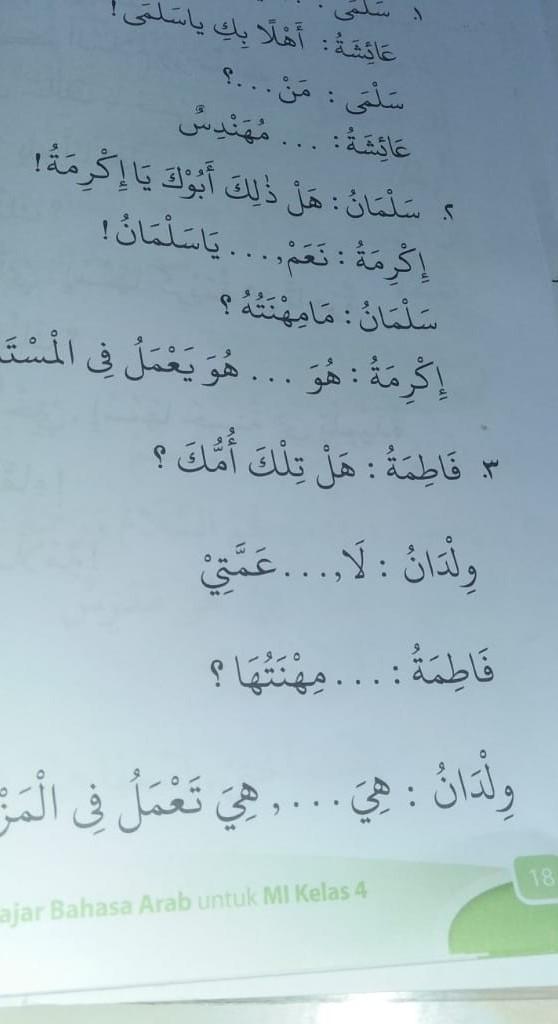 ١. سَلْمَى :
عَائِشَةُ : أَهْلًا بِكِ يَاسَلْمَى !
سَلْمَى : مَنْ ...؟
عَائِشَةُ : ... مُهَنْدِسٌ
٢. سَلْمَانُ : هَلْ ذٰلِكَ أَبُوْكَ يَا إِكْرِمَةُ !
إِكْرِمَةُ : نَعَمْ, ... يَاسَلْمَانُ !
سَلْمَانُ : مَامِهْنَتُهُ ؟
إِكْرِمَةُ : هُوَ ... هُوَ يَعْمَلُ فِى
٣. فَاطِمَةُ : هَلْ تِلْكَ أُمُّكَ ؟
وِلْدَانُ : لَا, ... عَمَّتِيْ
فَاطِمَةُ : ... مِهْنَتُهَا ؟
وِلْدَانُ : هِيَ ... , هِيَ تَعْمَلُ فِى
Bahasa Arab untuk MI Kelas 4
18